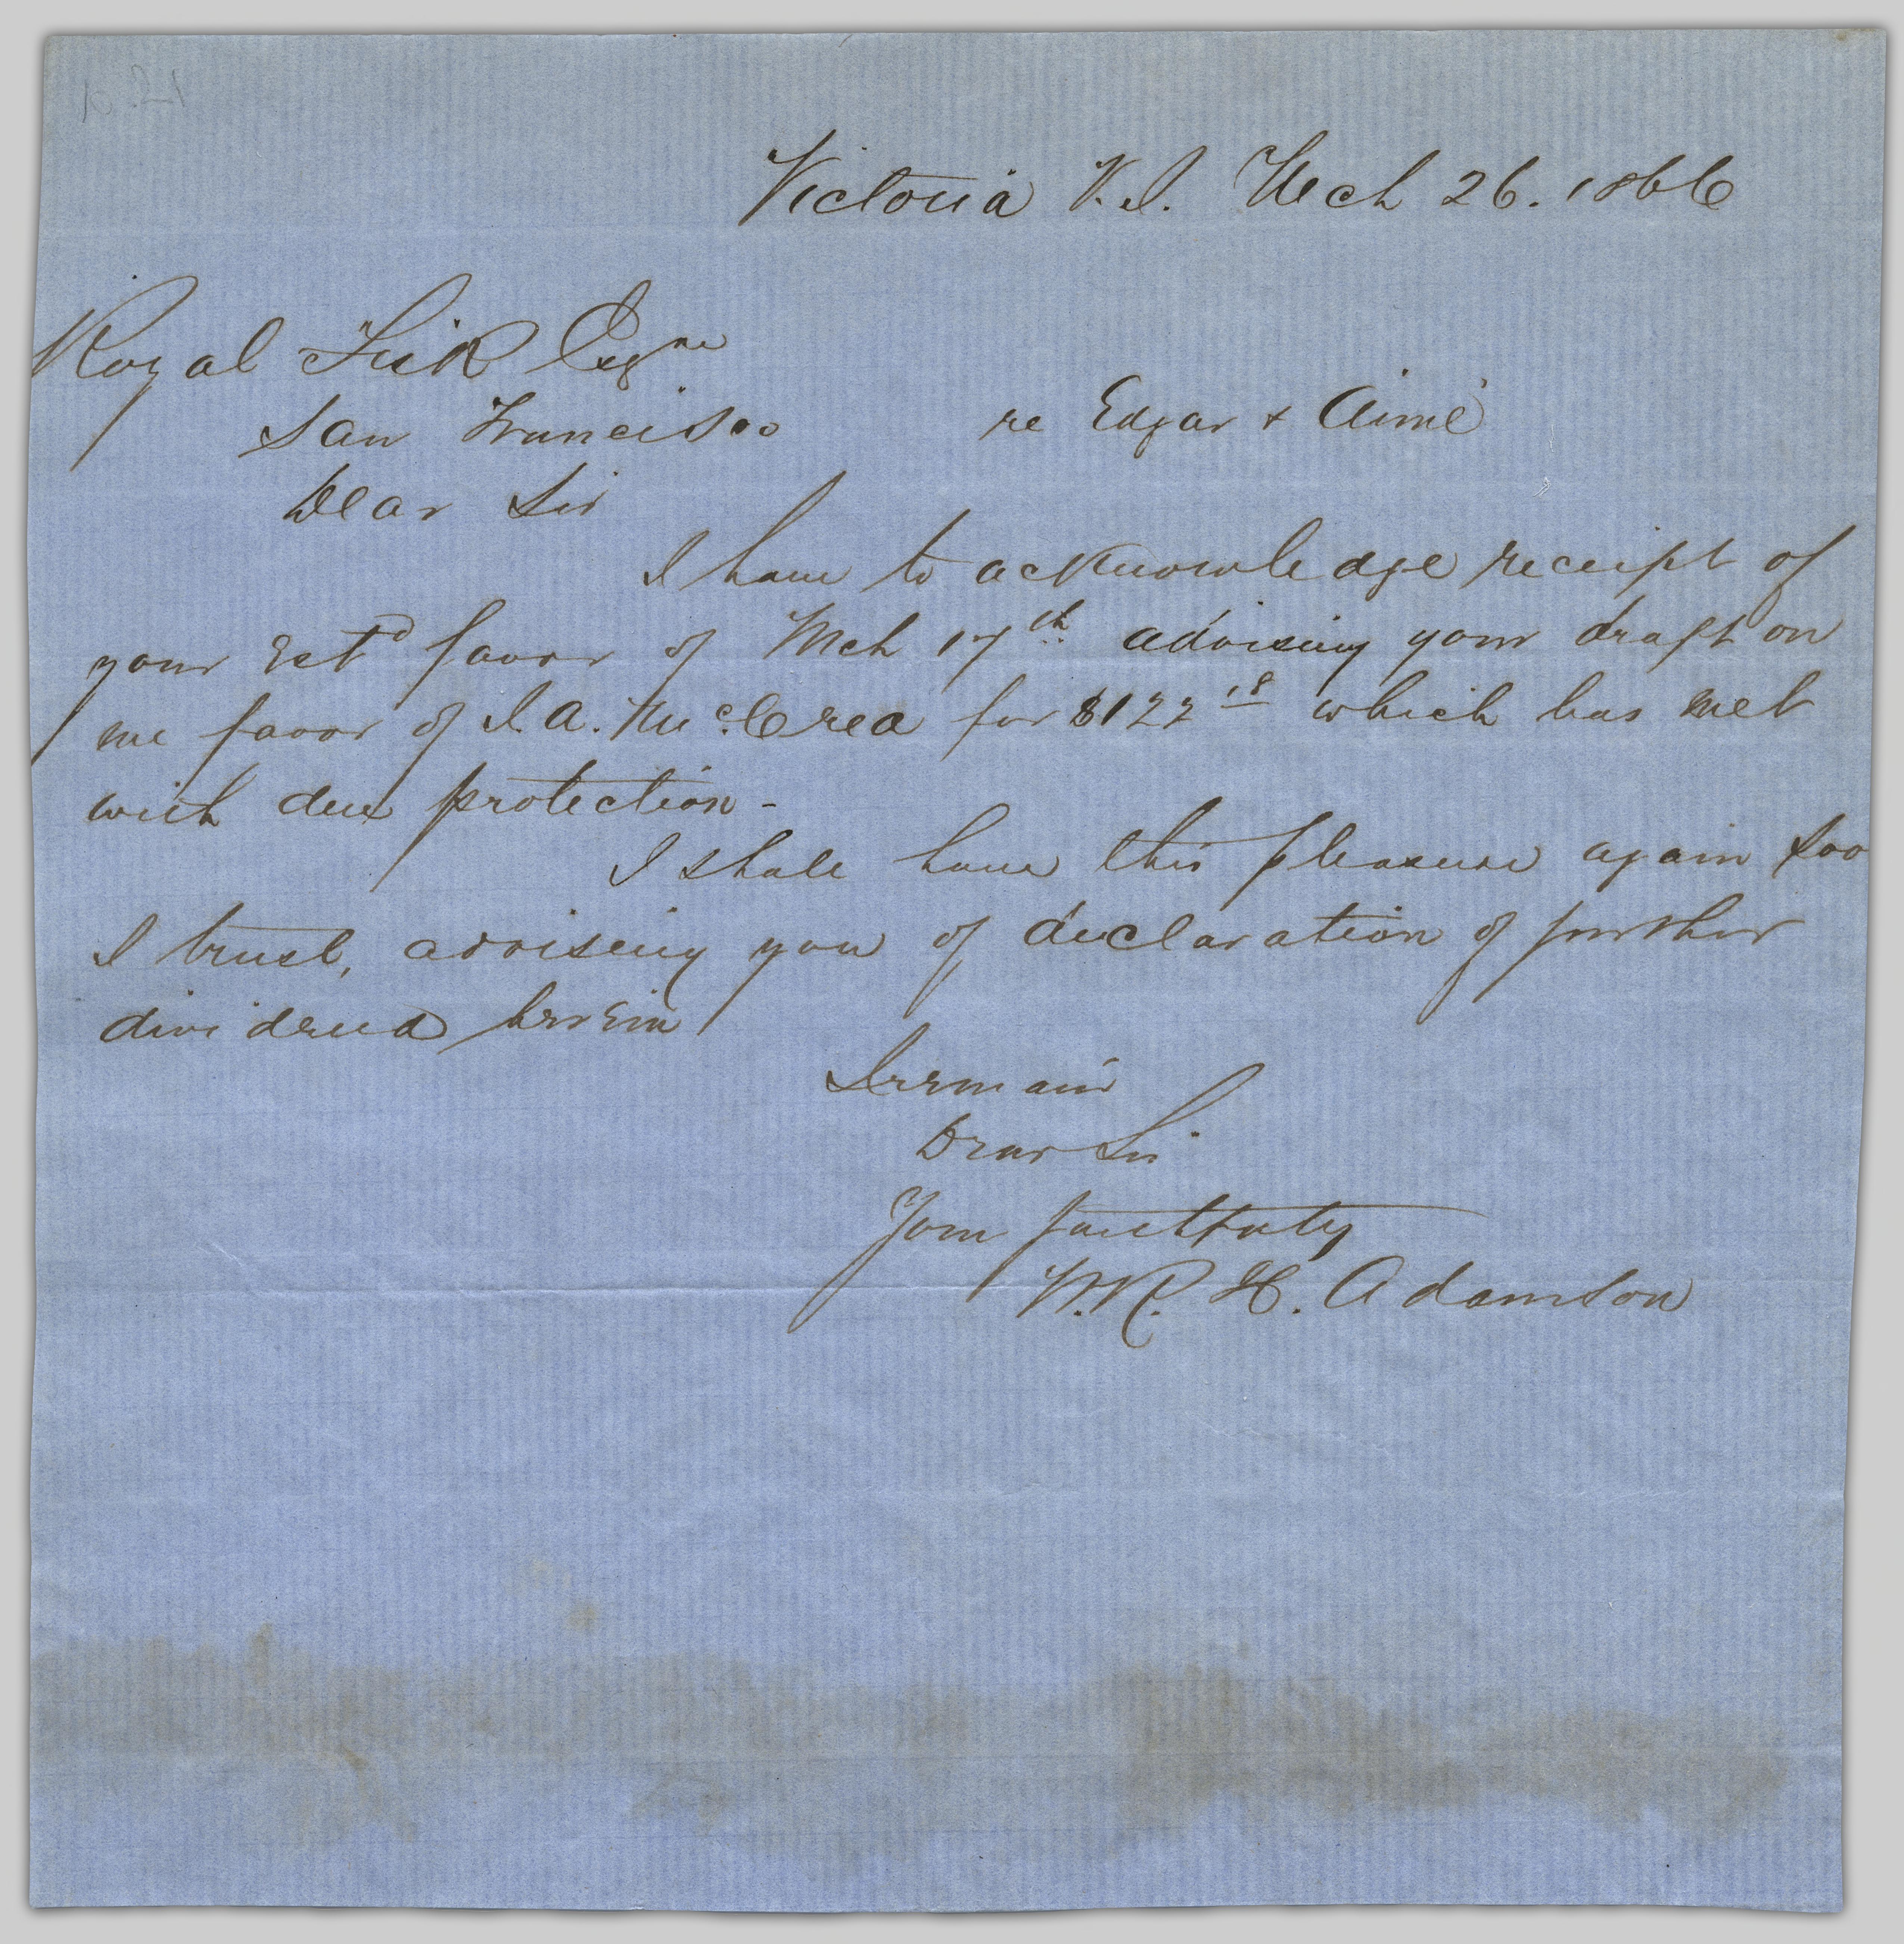 Victoria V.I. Mch 26. 1866
Royal Fisk Esqre
San Francisco re Edgar & Aimé
Dear Sir
I have to acknowledge receipt of
your Estd favor of Mch 17th advising your draft on
me favor of J. A. McCrea for $122 18 which has met
with due protection -
I shall have this pleasure again soo
I trust, advising you of declaration of further
dividend herein
I remain
Dear Sir
Yours faithfully
W. R. H. Adamson